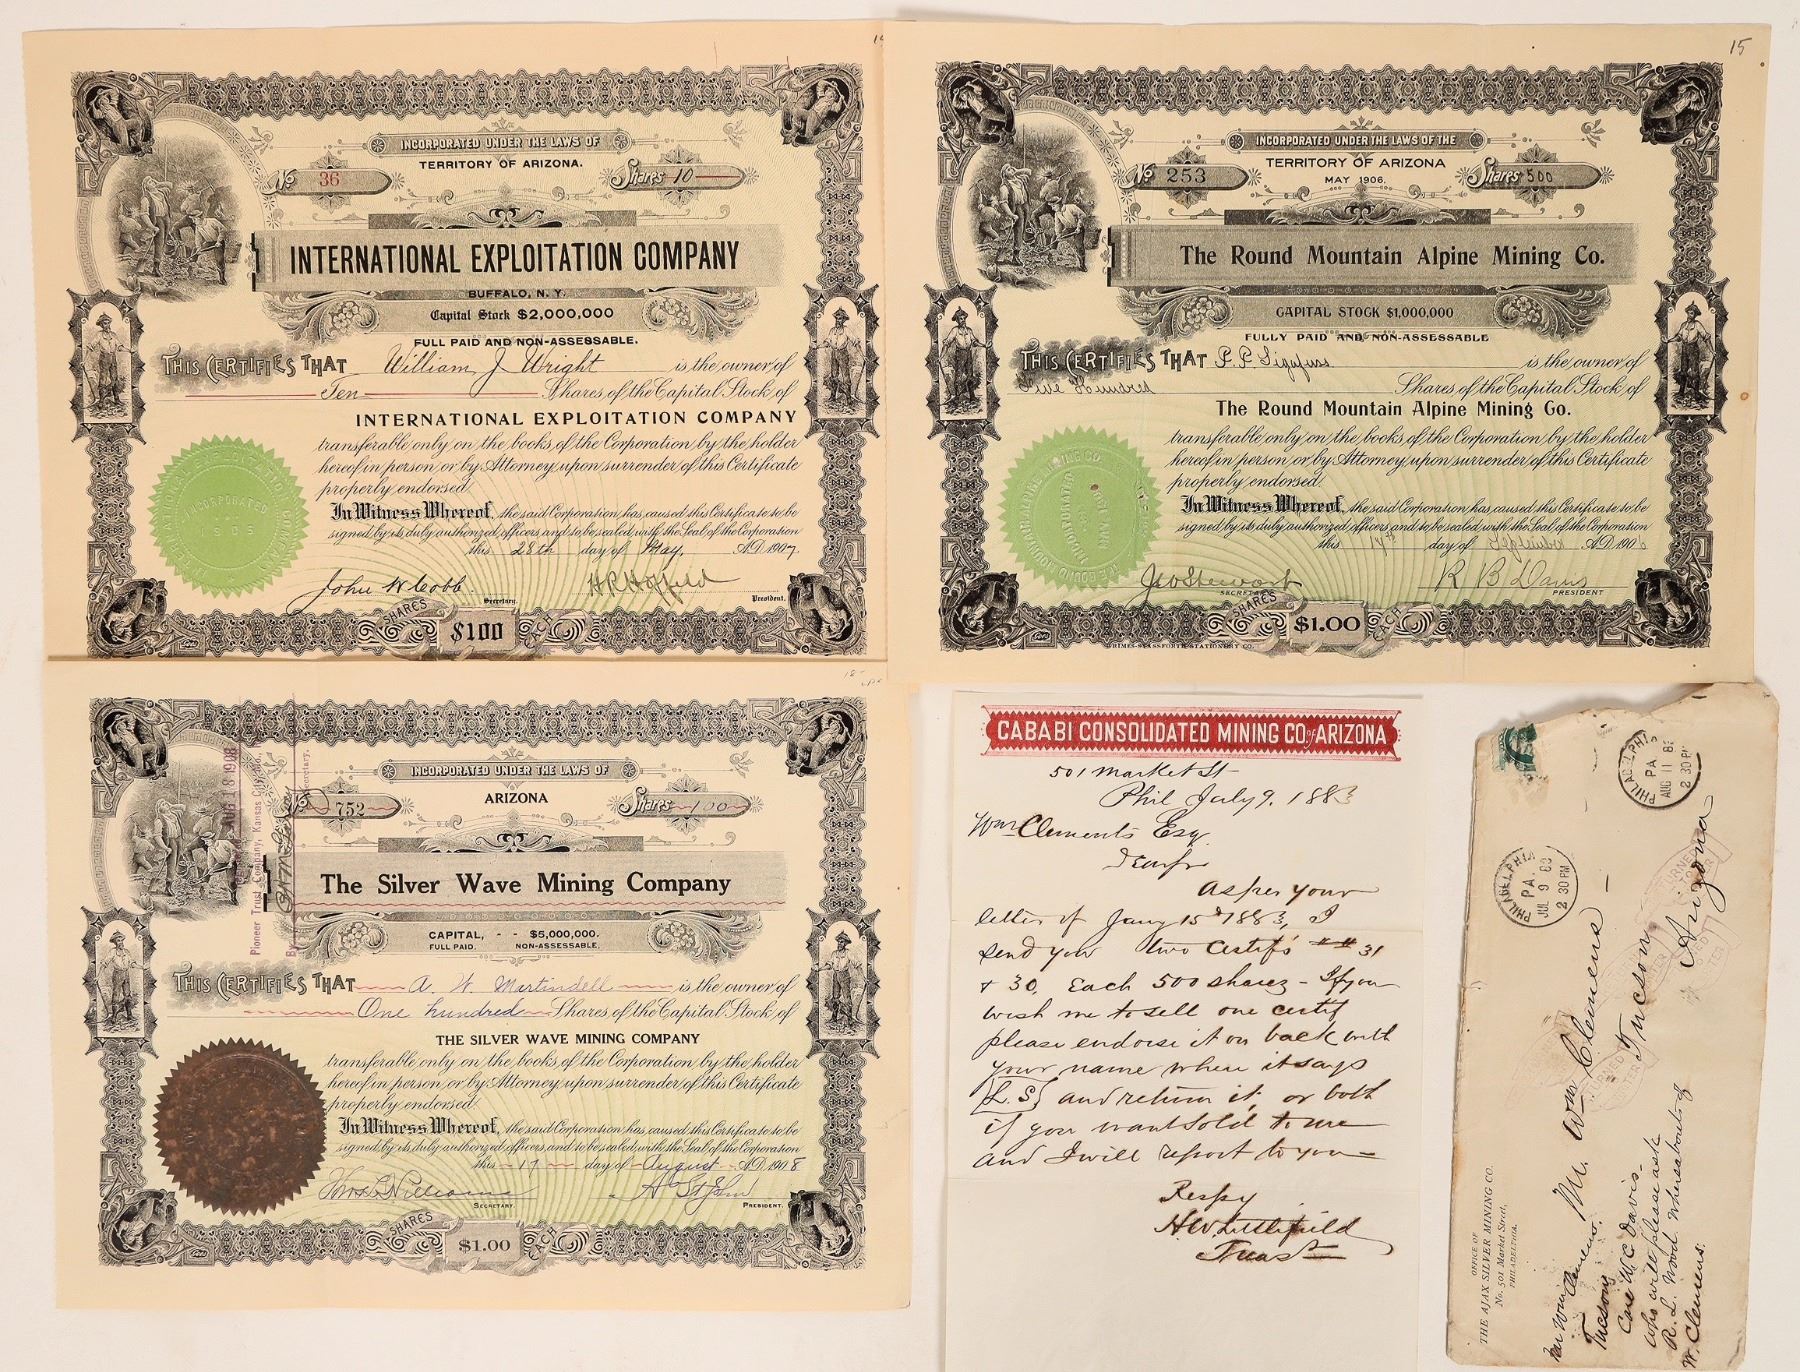 INCORPORATED UNDER THE LAWS OF
TERRITORY OF ARIZONA.
No 36
Shares 10
INTERNATIONAL EXPLOITATION COMPANY
BUFFALO, N. Y.
Capital Stock $2,000,000
FULL PAID AND NON-ASSESSABLE.
THIS CERTIFIES THAT William J Wright is the owner of
Ten Shares of the Capital Stock of
INTERNATIONAL EXPLOITATION COMPANY
transferable only on the books of the Corporation by the holder
hereof in person or by Attorney upon surrender of this Certificate
properly endorsed.
In Witness Whereof, the said Corporation has caused this Certificate to be
signed by its duly authorized officers and to be sealed with the Seal of the Corporation
this 28th day of May, A.D. 1907.
John W Cobb
Secretary.
President.
INTERNATIONAL EXPLOITATION COMPANY
INCORPORATED
1905
SHARES $100 EACH
15
INCORPORATED UNDER THE LAWS OF THE
TERRITORY OF ARIZONA
MAY 1906.
No 253
Shares 500
The Round Mountain Alpine Mining Co.
CAPITAL STOCK $1,000,000
FULLY PAID AND NON-ASSESSABLE
THIS CERTIFIES THAT P. P. is the owner of
Five Hundred Shares of the Capital Stock of
The Round Mountain Alpine Mining Co.
transferable only on the books of the Corporation by the holder
hereof in person or by Attorney upon surrender of this Certificate
properly endorsed.
In Witness Whereof, the said Corporation has caused this Certificate to be
signed by its duly authorized officers and to be sealed with the Seal of the Corporation
this day of September A.D. 1906
Geo Stewart
R B Davis
SECRETARY
PRESIDENT
SHARES $1.00 EACH
GRIMES-STASSFORTH STATIONERY CO.
INCORPORATED UNDER THE LAWS OF
ARIZONA
No 752
Shares 100
The Silver Wave Mining Company
CAPITAL, - - $5,000,000.
FULL PAID. NON-ASSESSABLE.
THIS CERTIFIES THAT A. W. Martindell is the owner of
One hundred Shares of the Capital Stock of
THE SILVER WAVE MINING COMPANY
transferable only on the books of the Corporation by the holder
hereof in person or by Attorney upon surrender of this Certificate
properly endorsed.
In Witness Whereof, the said Corporation has caused this Certificate to be
signed by its duly authorized officers and to be sealed with the Seal of the Corporation
this 17 day of August A.D. 1908
Thos L Williams
A St John
SECRETARY.
PRESIDENT.
SHARES $1.00 EACH
AUG 18 1908
Pioneer Trust Company, Kansas City,
By
Secretary.
CABABI CONSOLIDATED MINING CO OF ARIZONA
501 Market St
Phil July 9, 1883
Wm Clements Esq
Dear Sir
As per your
letter of Jany 15th 1883, I
send you two Certifs ## 31
+ 30. Each 500 shares - If you
wish me to sell one certif
please endorse it on back with
your name where it says
L.S. and return it, or both
if you want sold to me
and I will report to you
Respy
H. W. Littlefield
Treast
PHILADELPHIA PA. AUG 11 83 2 30 PM
PHILADELPHIA PA. JUL 9 83 2 30 PM
Mr. Wm Clemens
Tucson
Arizona
RETURNED TO WRITER
OFFICE OF
THE AJAX SILVER MINING CO.
No. 501 Market Street,
PHILADELPHIA.
Mr Wm Clemens.
Tucson
Care W. C. Davis.
who will please ask
R. L. Wood whereabouts of
W. Clemens.